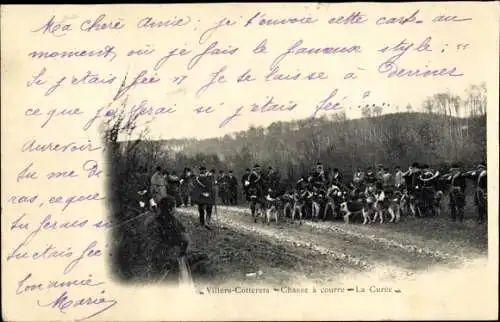 Ma chère Amie ; je t'envoie cette carte au
moment où je fais le fameux style ; "
Si j'étais fée " je te laisse à deviner
ce que je ferai si j'étais fée !
Aurevoir.
Tu me di-
ras ceque tu
ferais si
tu étais fée
Ton Amie
Marie
Villers-Cotterets - Chasse à courre - La Curée